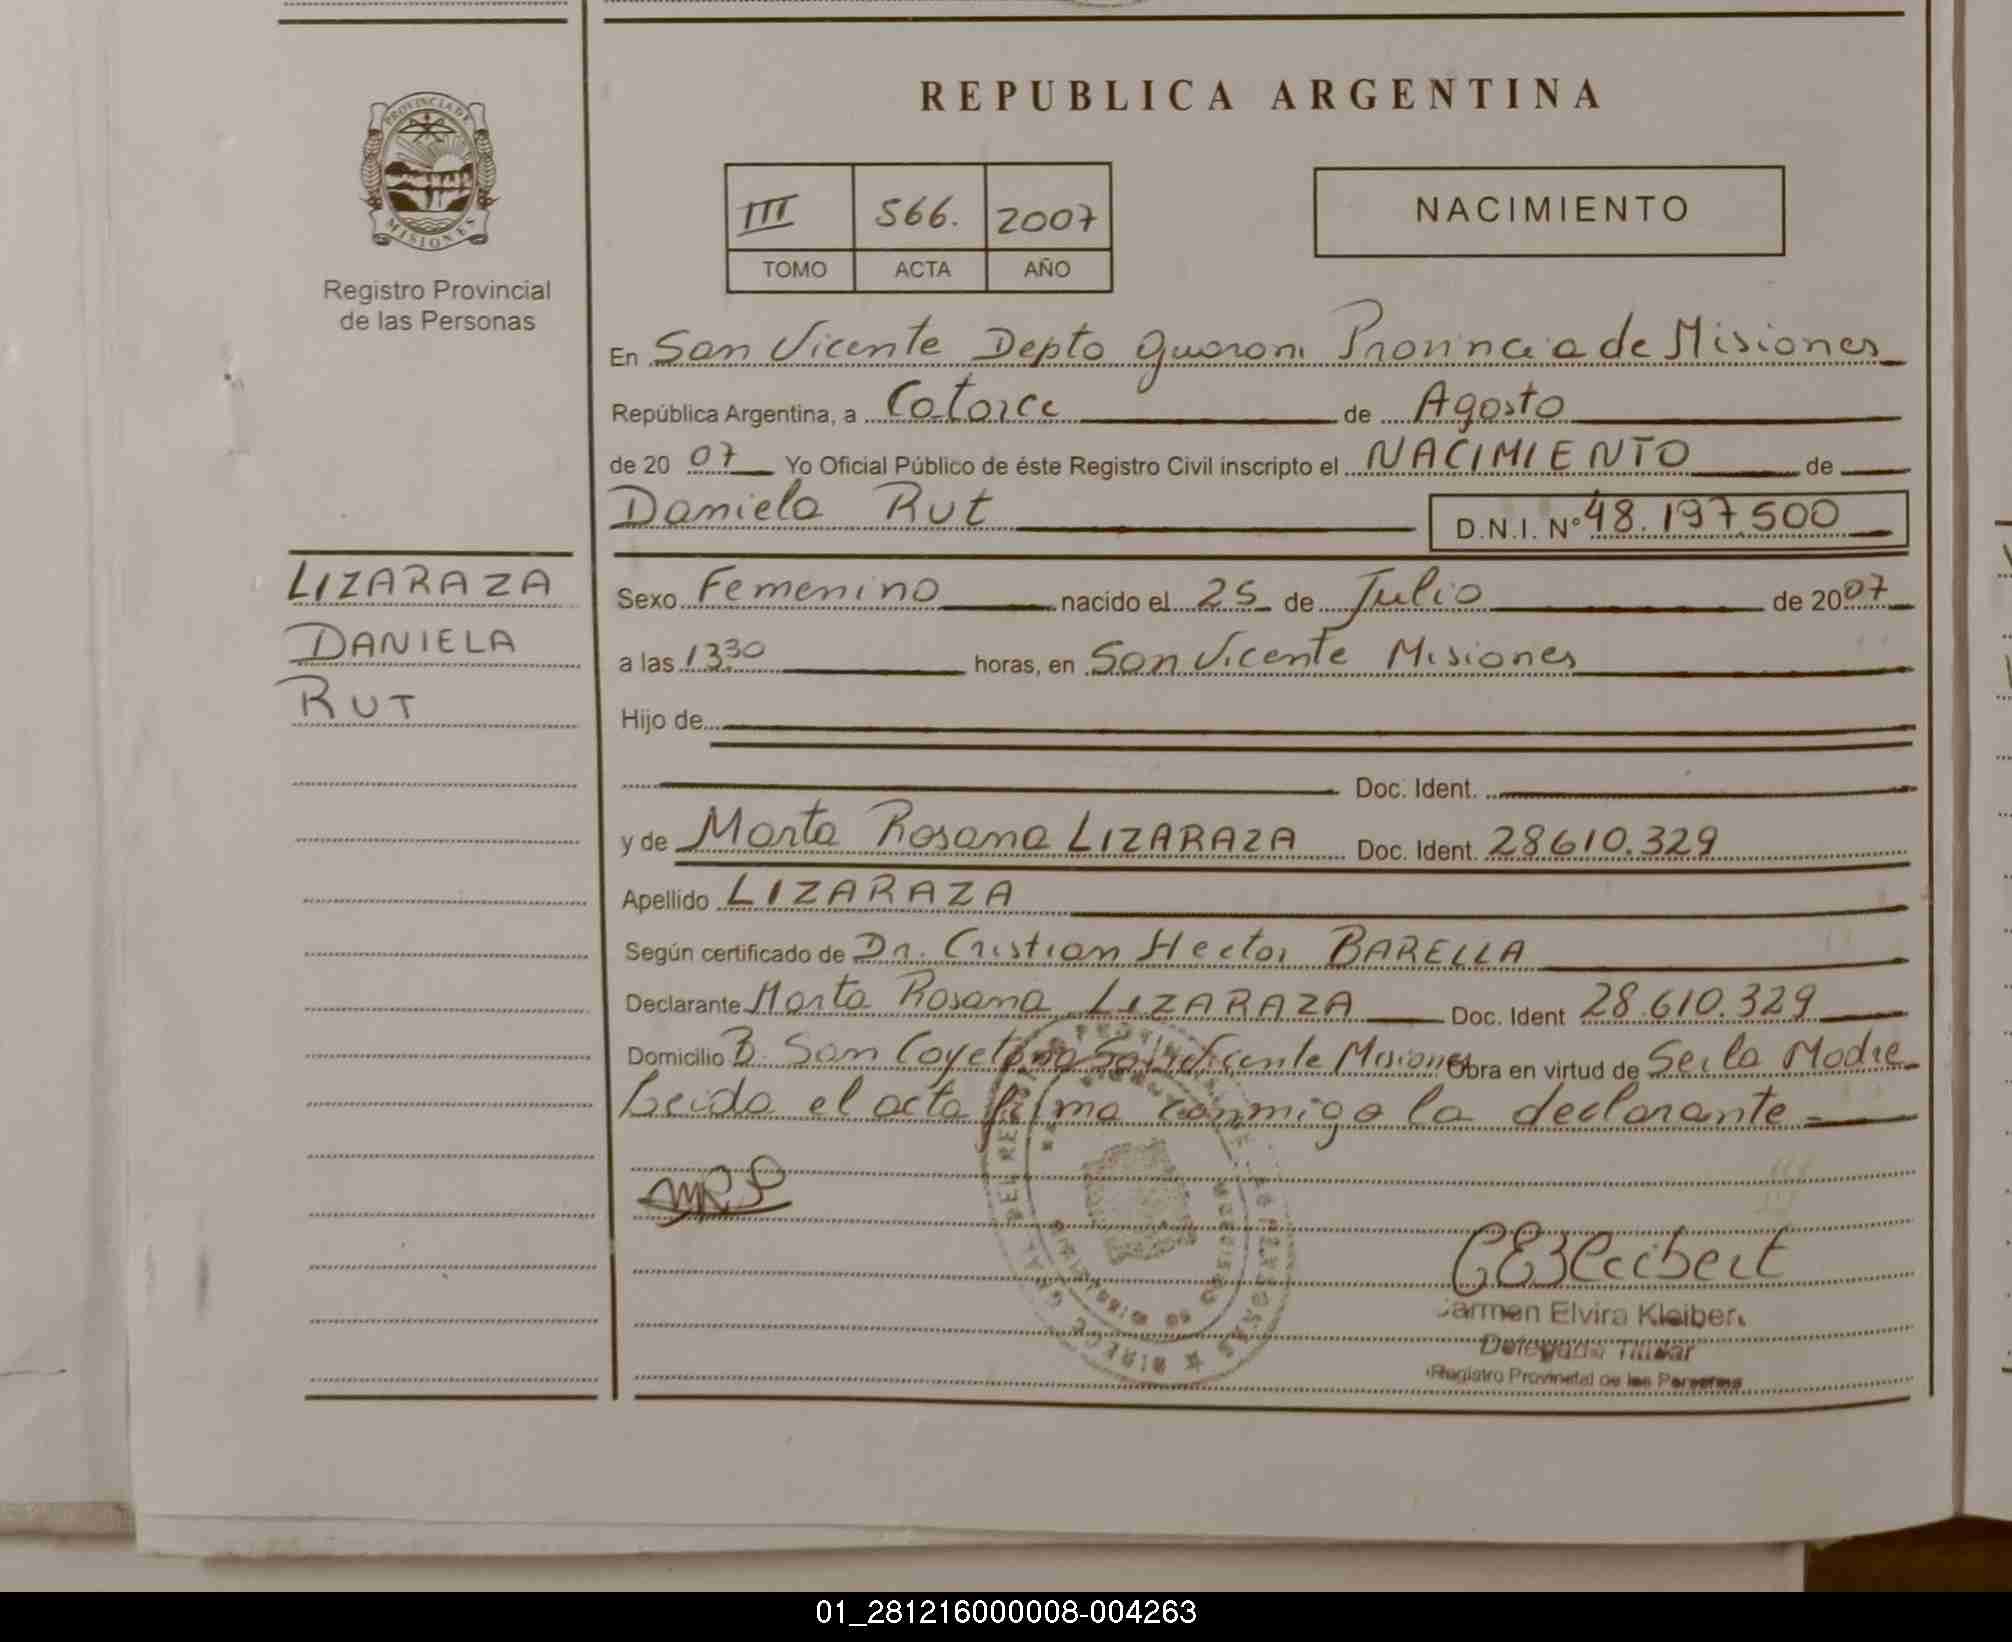 REPUBLICA ARGENTINA
PROVINCIA DE
MISIONES
Registro Provincial
de las Personas
III 566. 2007
TOMO ACTA AÑO
NACIMIENTO
En San Vicente Depto Guarani Provincia de Misiones
República Argentina, a Catorce de Agosto
de 20 07 Yo Oficial Público de éste Registro Civil inscripto el NACIMIENTO de
Daniela Rut D.N.I. Nº 48.197.500
LIZARAZA
DANIELA
RUT
Sexo Femenino nacido el 25 de Julio de 2007
a las 13:30 horas, en San Vicente Misiones
Hijo de
Doc. Ident.
y de Marta Rosana LIZARAZA Doc. Ident. 28610.329
Apellido LIZARAZA
Según certificado de Dr. Cristian Hector BARELLA
Declarante Marta Rosana LIZARAZA Doc. Ident 28.610.329
Domicilio B. San Cayetano San Vicente Misiones Obra en virtud de Ser la Madre
Leida el acta firma conmigo la declarante
CEKleibert
Carmen Elvira Kleibert
Delegada Titular
Registro Provincial de las Personas
01_281216000008-004263